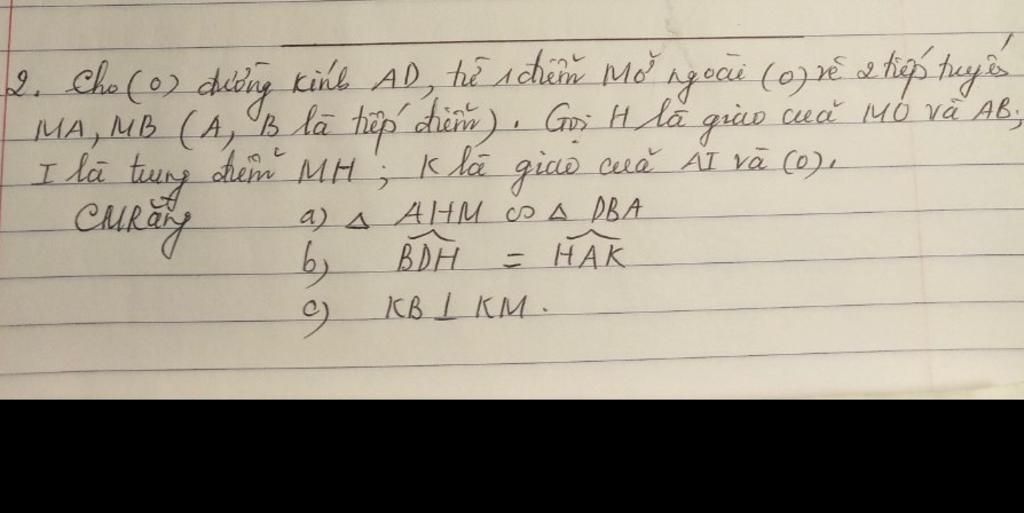 2. Cho (O) đường kính AD, từ 1 điểm M ở ngoài (O) vẽ 2 tiếp tuyến
MA, MB (A, B là tiếp điểm). Gọi H là giao của MO và AB;
I là trung điểm MH; K là giao của AI và (O).
CMRằng a) △ AHM ∽ △ DBA
b) \widehat{BDH} = \widehat{HAK}
c) KB ⊥ KM.